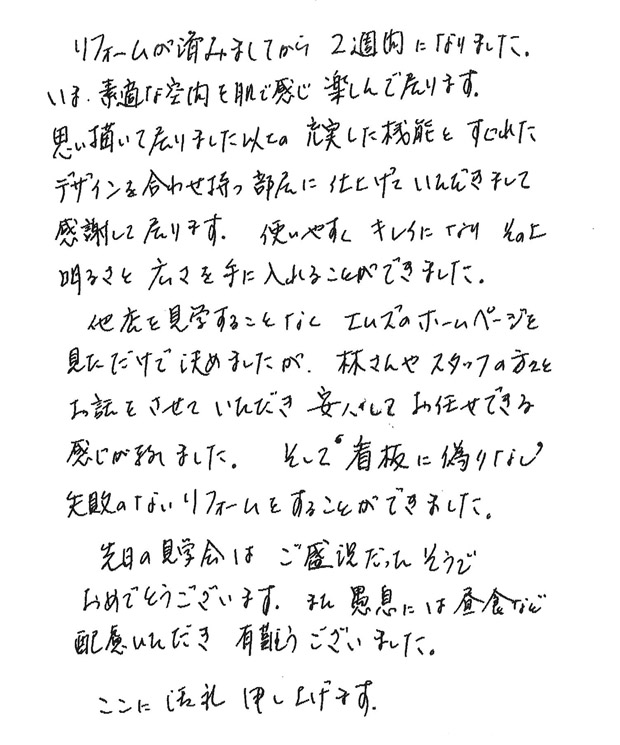 リフォームが済みましてから 2週間になりました。
いま、素適な空間を肌で感じ 楽しんで居ります。
思い描いて居りました以上の 充実した機能と すぐれた
デザインを合わせ持つ部屋に 仕上げて いただきまして
感謝して居ります。 使いやすく キレイになり その上
明るさと 広さを手に入れることができました。
他店を見学することなく エムズのホームページを
見ただけで決めましたが、林さんや スタッフの方々と
お話をさせて いただき 安心して お任せできる
感じが致しました。 そして“看板に偽りなし”
失敗のないリフォームをすることができました。
先日の見学会は ご盛況だった そうで
おめでとうございます。また 愚息には昼食など
配慮いただき 有難うございました。
ここに 御礼 申し上げます。